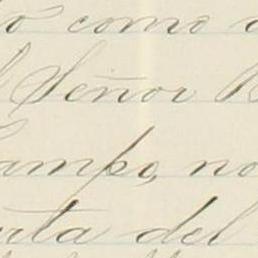 como
Señor
ampo, no
ata del